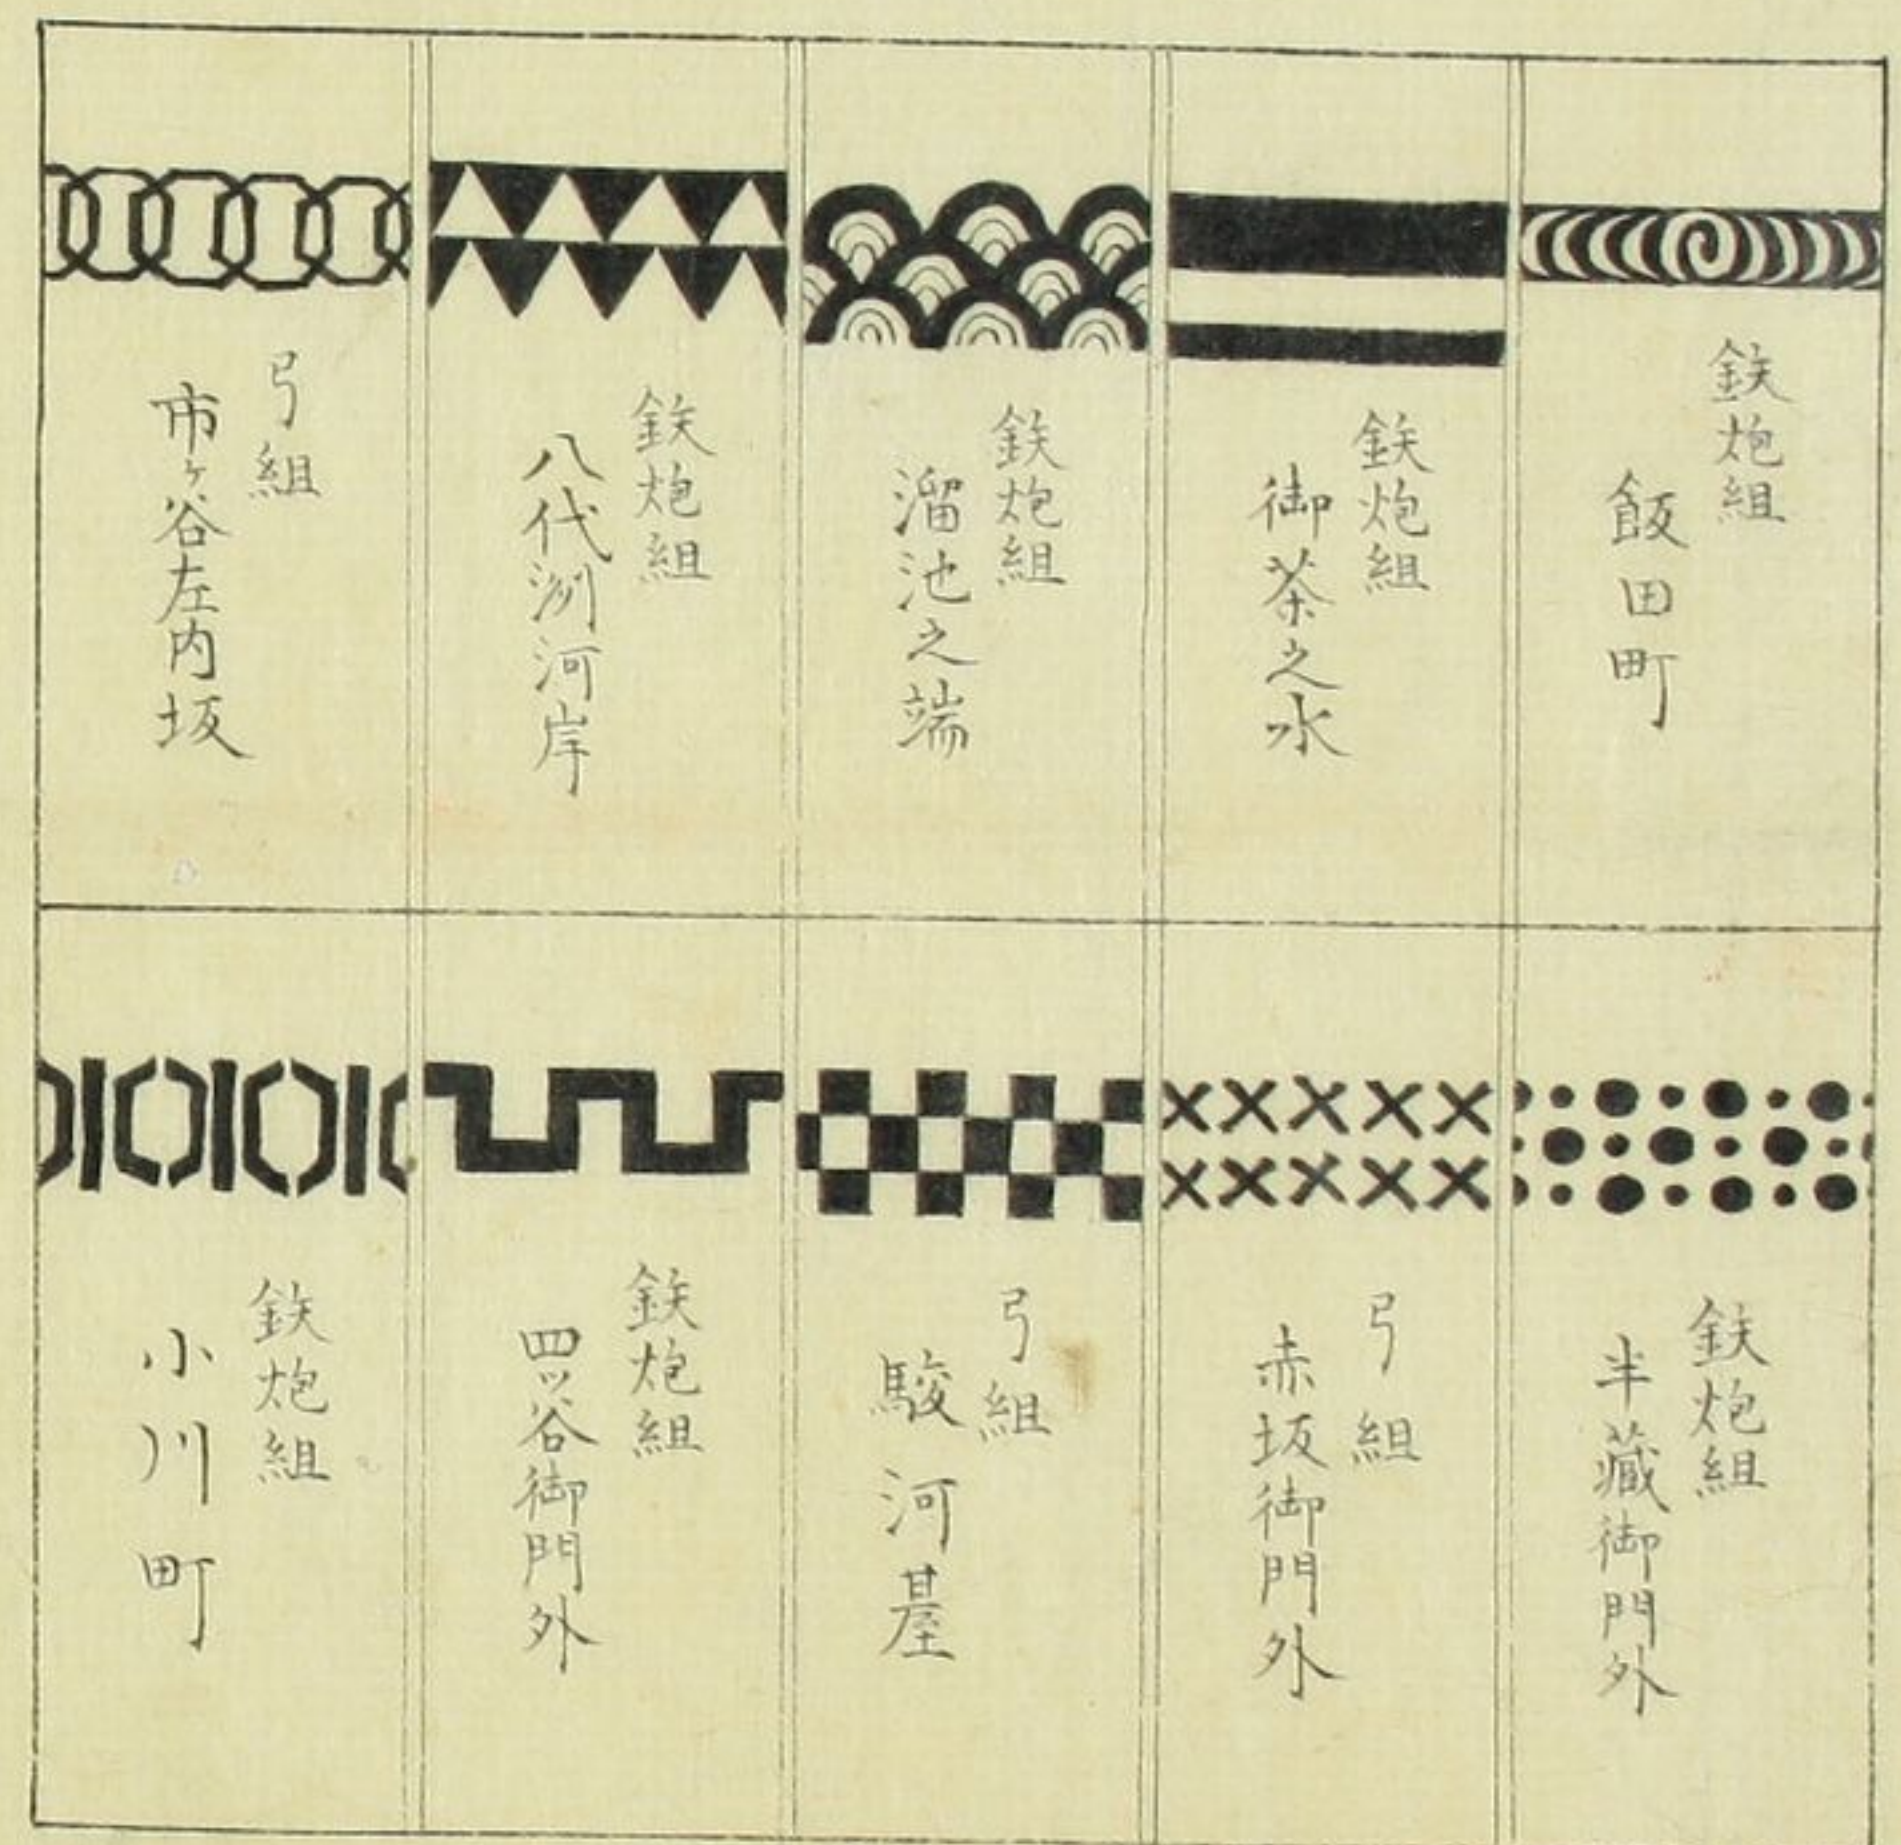 鉄炮組
飯田町
鉄炮組
御茶之水
鉄炮組
溜池之端
鉄炮組
八代洲河岸
弓組
市ヶ谷左内坂
鉄炮組
半藏御門外
弓組
赤坂御門外
弓組
駿河䑓
鉄炮組
四ッ谷御門外
鉄炮組
小川町